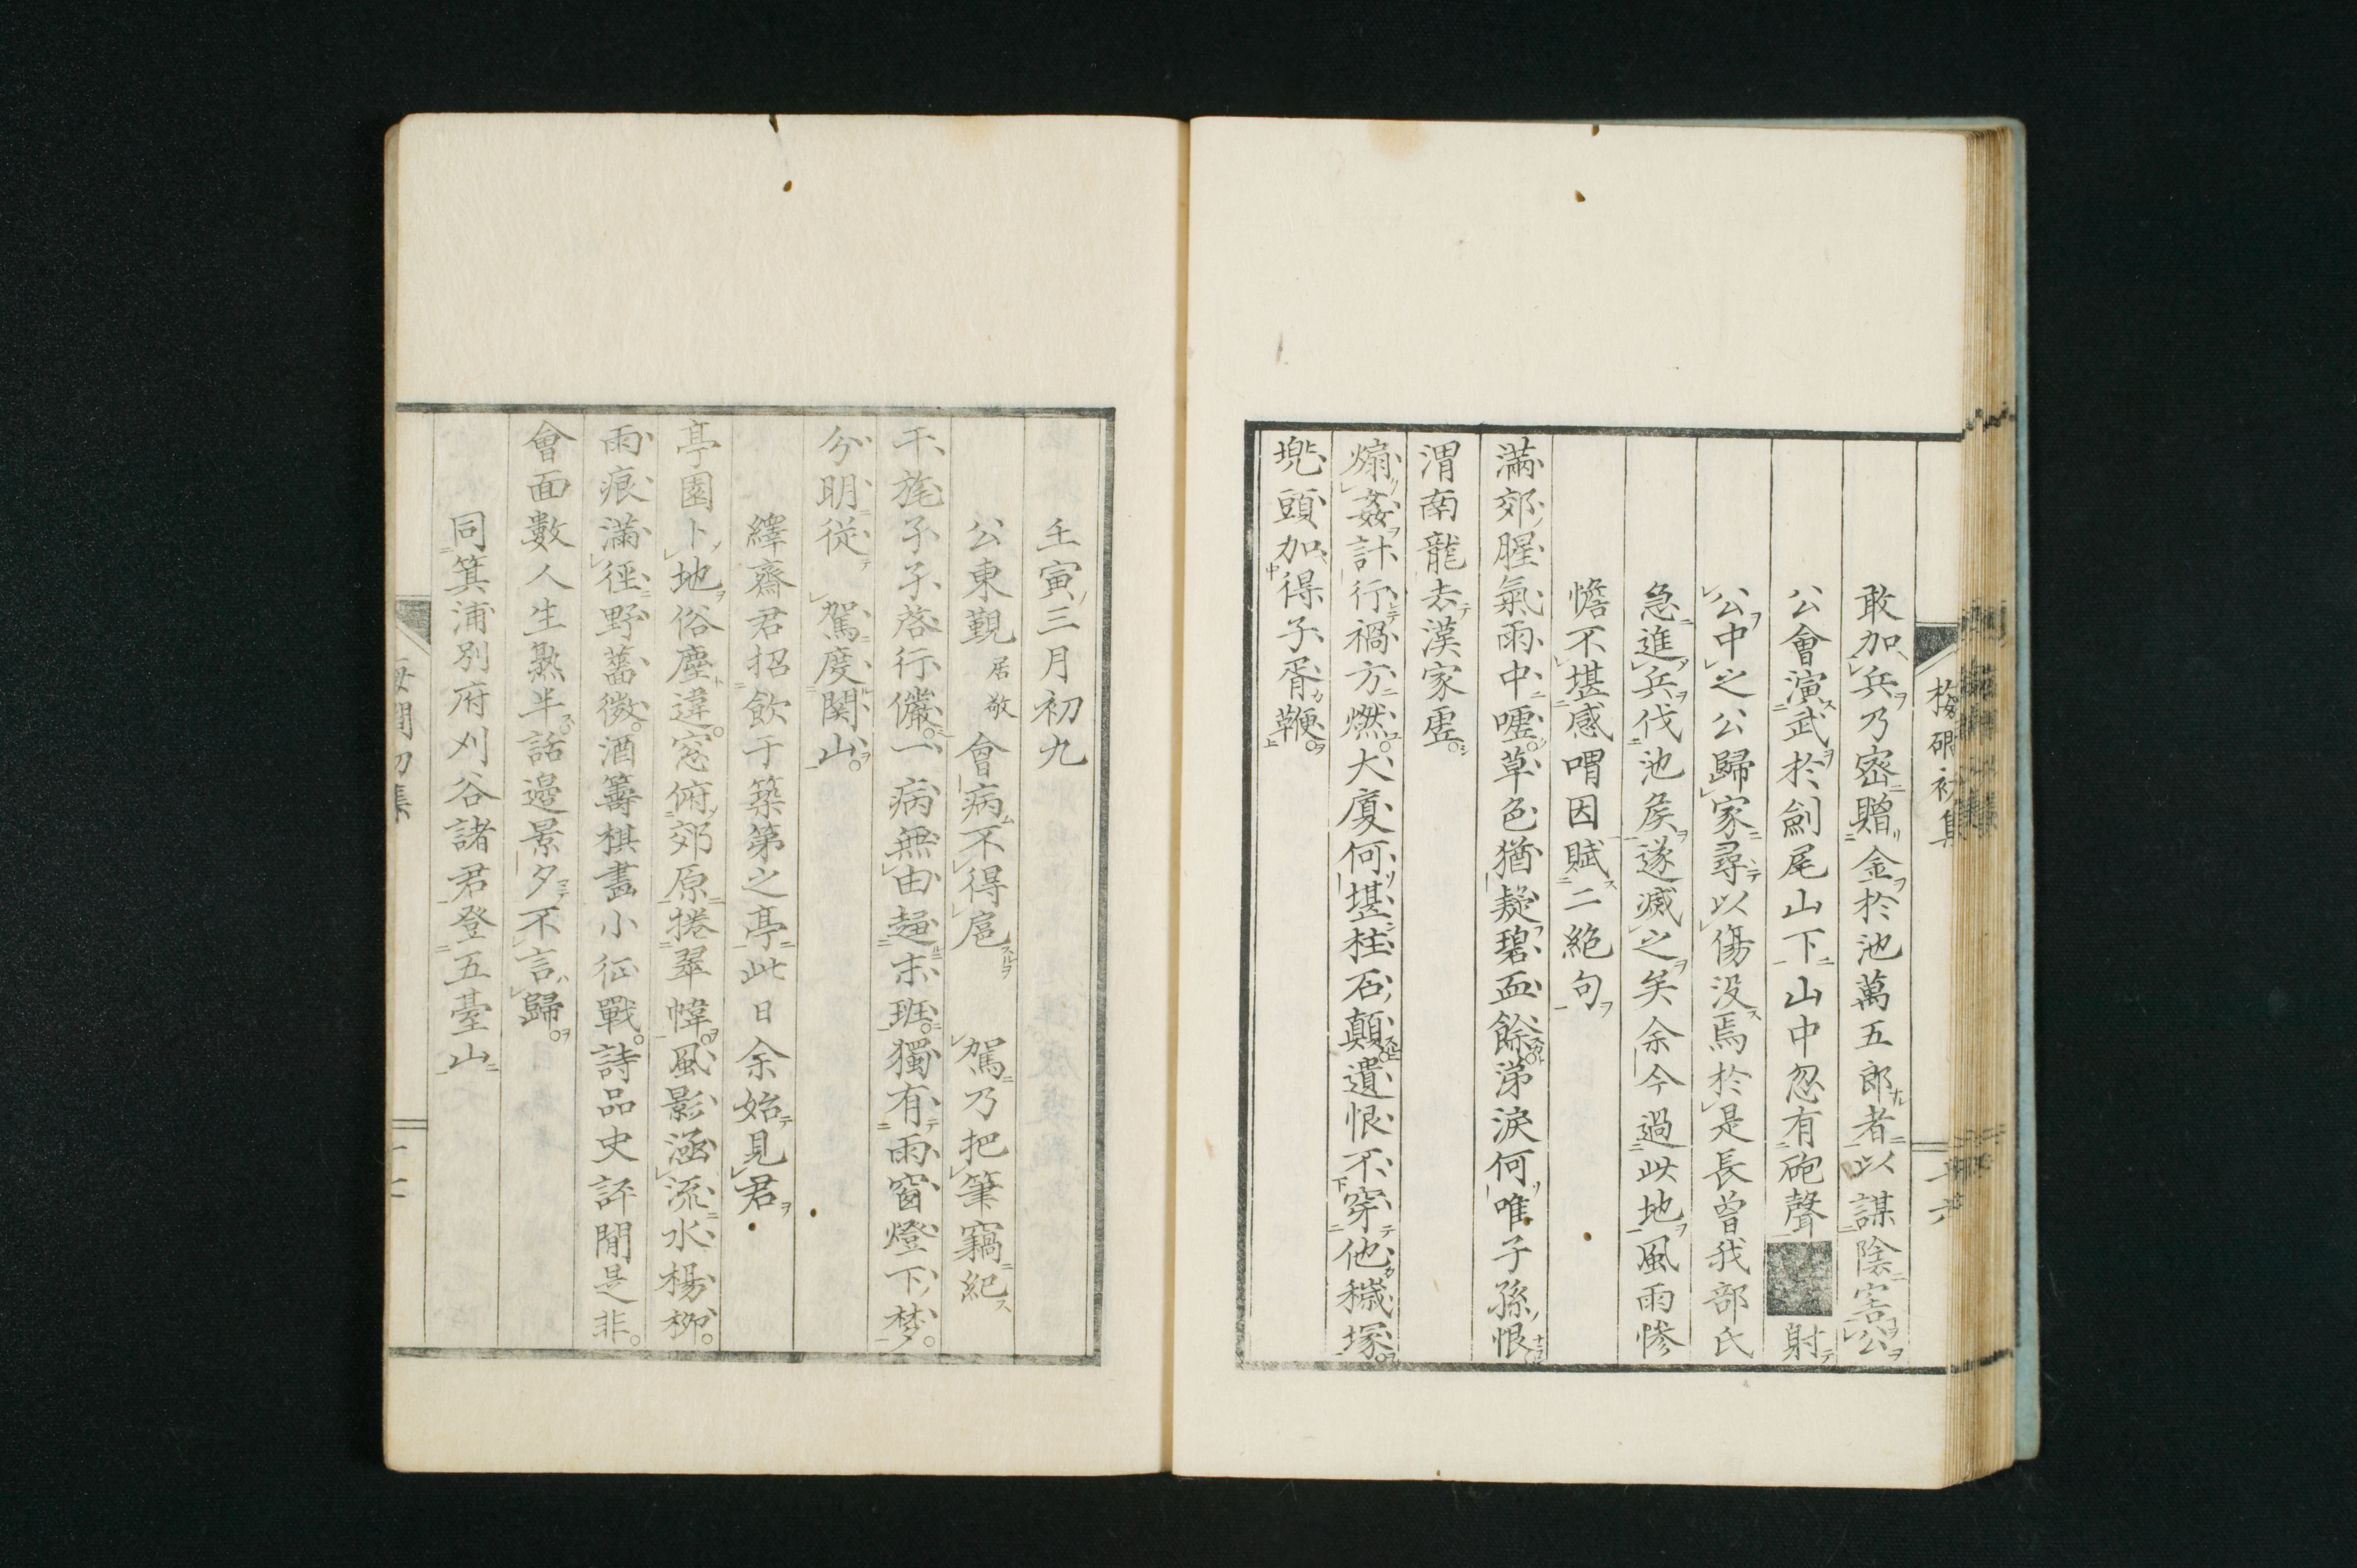 敢加兵乃密贈金於池萬五郎者以謀陰害公
公會演武於劍尾山下山中忽有砲聲■射
公中之公歸家尋以傷没焉於是長曾我部氏
急進兵伐池矦遂滅之矣余今過此地風雨慘
憺不堪感喟因賦二絶句
滿郊腥氣雨中喱草色猶疑碧血餘涕淚何唯子孫恨
渭南龍去漢家虚
煽姦計行禍方燃大廈何堪柱石顛遺恨不穿他穢塚
兠頭加得子胥鞭
壬寅三月初九
公東覲居敬會病不得扈 駕乃把筆竊紀
干旄孑孑啓行儼一病無由趨末班獨有雨窗燈下梦
分明従 駕度関山
繹齋君招飲于築第之亭此日余始見君
亭園卜地俗塵違窓俯郊原捲翠幃風影涵流水楊柳
雨痕滿徑野薔薇酒籌棋畫小征戰詩品史評閒是非
會面數人生熟半話邉景夕不言歸
同箕浦別府刈谷諸君登五臺山